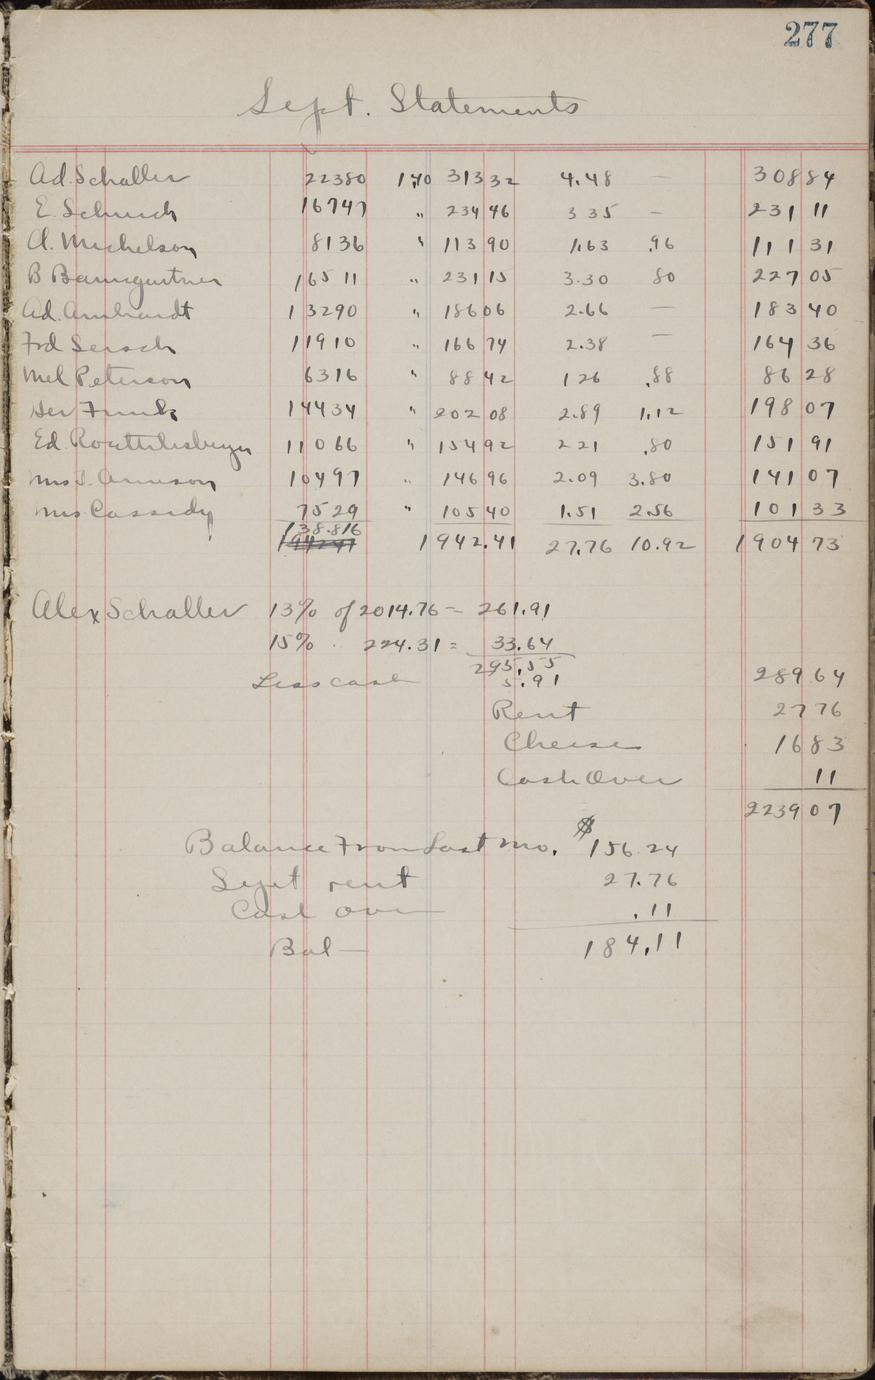 277
Sept. Statements
Ad. Schaller 22380 1.40 313 32 4.48 — 308 84
E. Schuich 16747 " 234 46 3 35 — 231 11
A. Michelson 8136 " 113 90 1.63 .96 111 31
B Baumgartner 16511 " 231 15 3.30 80 227 05
Ad. Arnhardt 13290 " 186 06 2.66 — 183 40
Frd Sersch 11910 " 166 74 2.38 — 164 36
Mel Peterson 6316 " 88 42 1 26 .88 86 28
Ger Funk 14434 " 202 08 2.89 1.12 198 07
Ed. Roethlisberger 11066 " 154 92 2 21 .80 151 91
Mrs J. Arneson 10497 " 146 96 2.09 3.80 141 07
Mrs Cassidy 7529 " 105 40 1.51 2.56 101 33
138.816
1942.41 27.76 10.92 1904 73
Alex Schaller 13% of 2014.76 — 261.91
15% " 224.31 = 33.64
295.55
Less case 5.91 289 64
Rent 27 76
Cheese 16 83
Cash Over 11
2239 07
Balance From Last Mo. $156.24
Sept rent 27.76
Cash Over .11
Bal — 184.11